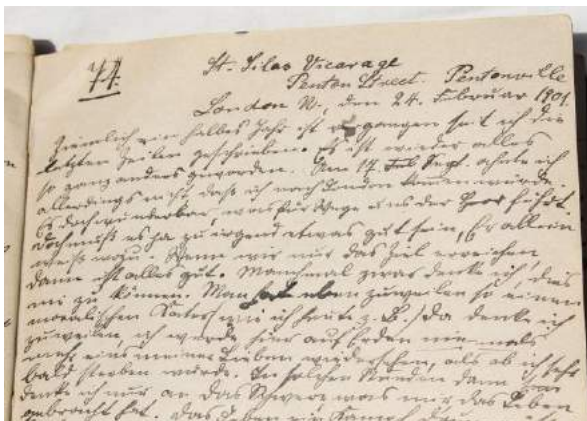 44.
St. Silas Vicarage
Penton Street. Pentonville
London N., den 24. Februar 1901.
Ziemlich ein halbes Jahr ist vergangen seit ich die
letzten Zeilen geschrieben. Es ist wieder alles
so ganz anders geworden. Am 17. Sept. ahnte ich
allerdings nicht, daß ich nach London kommen würde.
Es doch wunderbar, was für Wege uns der Herr führt.
Doch muß es ja zu irgend etwas gut sein, Er allein
weiß wozu. Wenn wir nur das Ziel erreichen
dann ist alles gut. Manchmal zwar denke ich, dies
nie zu können. Man hat eben zuweilen so einen
moralischen Kater (wie ich heute z. B.) da denke ich
zuweilen, ich würde hier auf Erden niemals
mehr eins meiner Lieben wiedersehen, als ob ich sehr
bald sterben würde. In solchen Stunden dann
denke ich nur an das Schwere was mir das Leben
gebracht hat. Das Leben ein Kampf